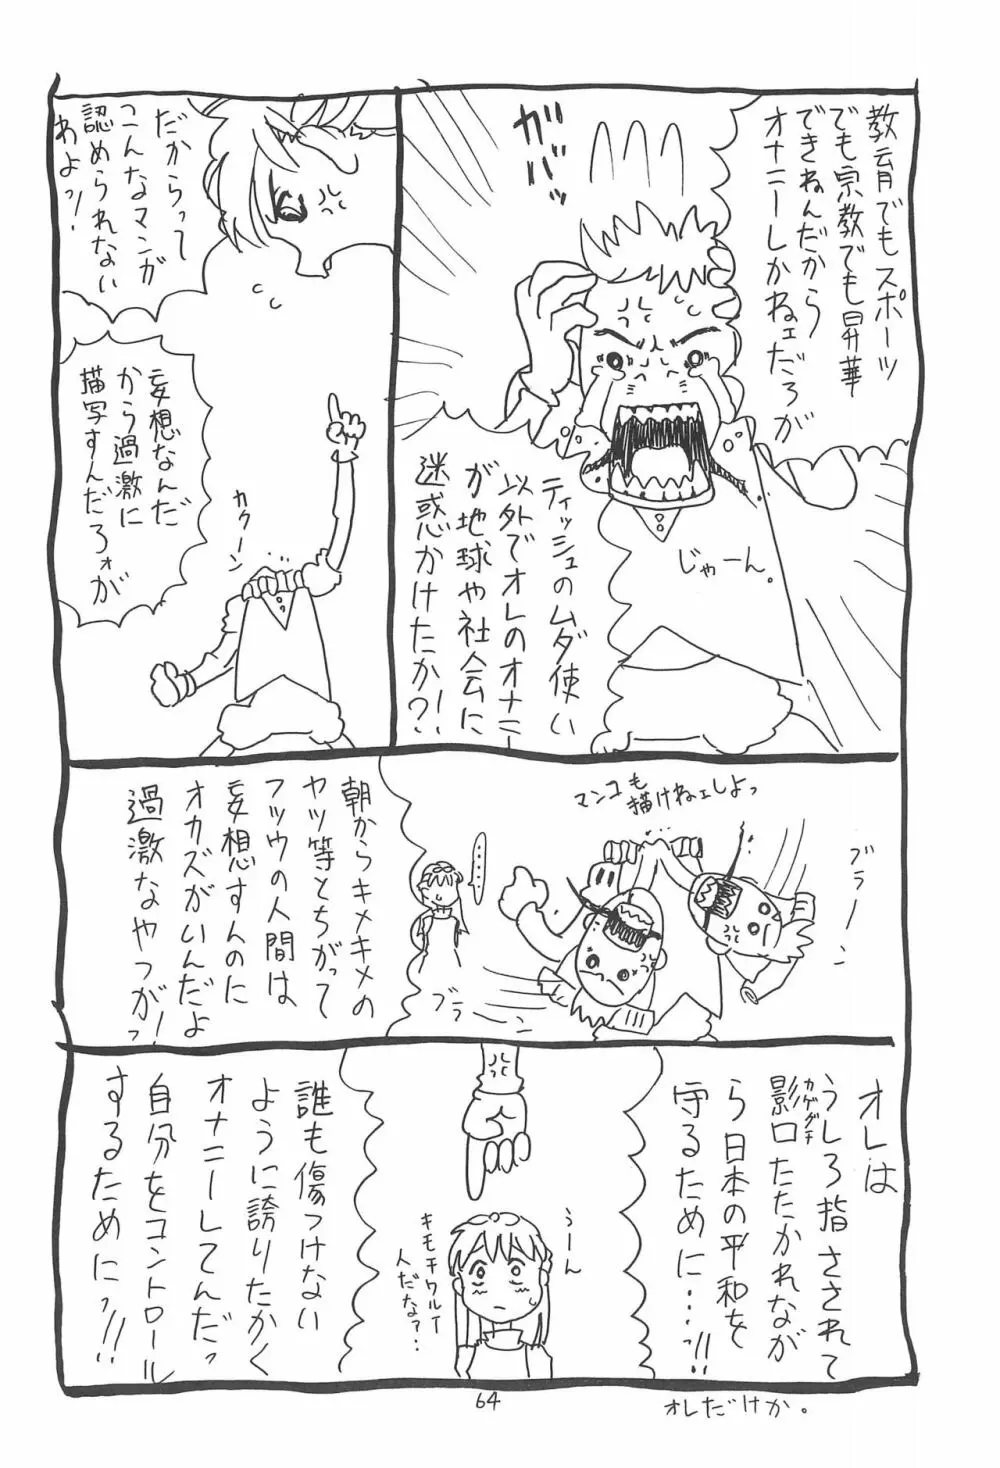 教育でもスポーツ
でも宗教でも昇華
できねんだから
オナニーしかねェだろが
ガバッ
じゃーん。
ティッシュのムダ使い
以外でオレのオナニー
が地球や社会に
迷惑かけたか?!
だからって
こんなマンガ
認められない
わよッ!
妄想なんだ
から過激に
描写すんだろォが
カクーン
マンコも
描けねェしよっ
ブラーン
ブラーン
……
朝からキメキメの
ヤツ等とちがって
フツウの人間は
妄想すんのに
オカズがいんだよ
過激なやつがーっ
オレは
うしろ指さされて
影口たたかれなが
カゲグチ
ら日本の平和を
守るために…っ!!
うーん
キモチワルイ
人だな?…
誰も傷つけない
ように誇りたかく
オナニーしてんだっ
自分をコントロール
するためにっ!!
64
オレだけか。